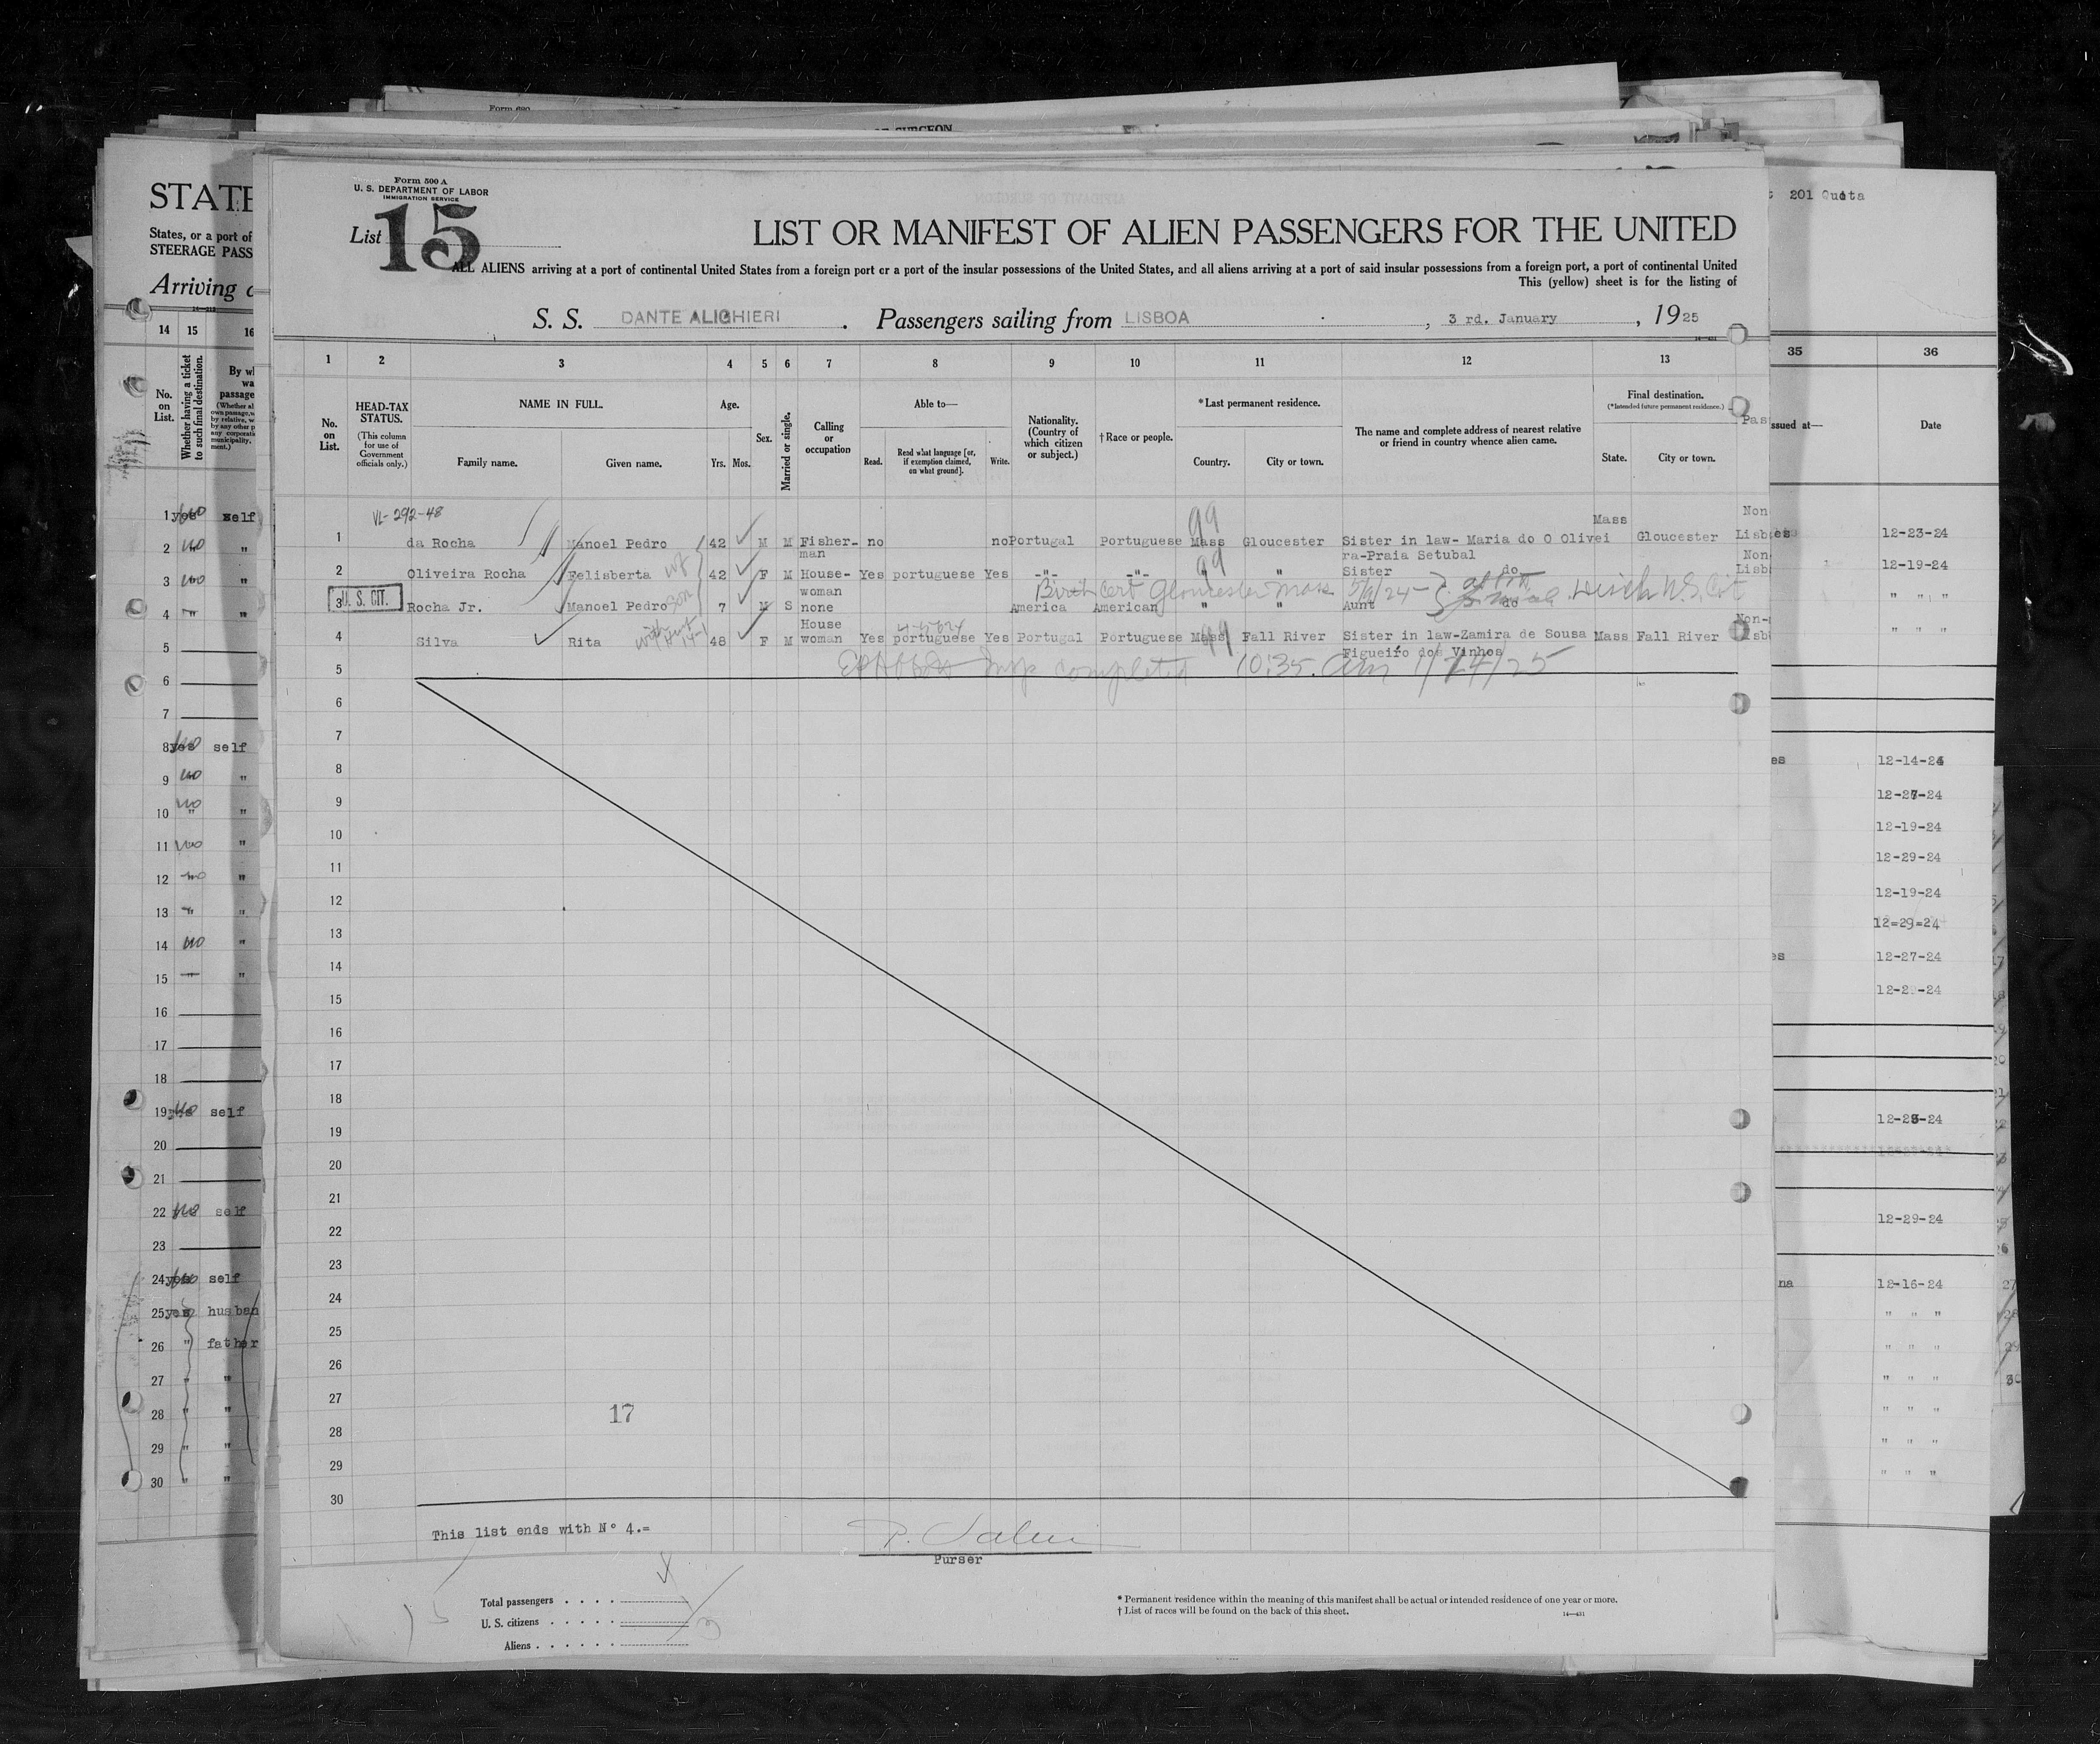 Form 680
OF SURGEON
STATE
States, or a port of
STEERAGE PASS
Arriving
14 15 16
No. on List.
Whether having a ticket to such final destination.
By wh
wa
passage
1 yes no self
2 no "
3 no "
4 " "
5
6
7
8 yes no self
9 no "
10 no "
11 no "
12 no "
13 "
14 no "
15 "
16
17
18
19 self
20
21
22 self
23
24 yes self
25 yes husban
26 " father
27 " "
28 " "
29 " "
30 " "
Form 500 A
U. S. DEPARTMENT OF LABOR
IMMIGRATION SERVICE
List 15
LIST OR MANIFEST OF ALIEN PASSENGERS FOR THE UNITED
ALL ALIENS arriving at a port of continental United States from a foreign port or a port of the insular possessions of the United States, and all aliens arriving at a port of said insular possessions from a foreign port, a port of continental United
This (yellow) sheet is for the listing of
S. S. DANTE ALIGHIERI. Passengers sailing from LISBOA, 3 rd. January, 1925
1 2 3 4 5 6 7 8 9 10 11 12 13
No. on List.
HEAD-TAX STATUS.
(This column for use of Government officials only.)
NAME IN FULL.
Family name. Given name.
Age.
Yrs. Mos.
Sex.
Married or single.
Calling or occupation
Able to—
Read. Read what language [or, if exemption claimed, on what ground]. Write.
Nationality. (Country of which citizen or subject.)
† Race or people.
*Last permanent residence.
Country. City or town.
The name and complete address of nearest relative or friend in country whence alien came.
Final destination.
(*Intended future permanent residence.)
State. City or town.
VL-292-48 99 Mass Non
1 da Rocha Manoel Pedro 42 M M Fisher- no no Portugal Portuguese Mass Gloucester Sister in law- Maria do O Olivei Gloucester Lisb
man ra-Praia Setubal Non
2 Oliveira Rocha Felisberta wf 42 F M House- Yes portuguese Yes -"- -"- 99 " " Sister do Lisb
woman Birth Cert Gloucester Mass 5/9/24 U.S. Cit
3 U. S. CIT. Rocha Jr. Manoel Pedro son 7 M S none America American " " Aunt do
House Non-
4 Silva Rita 48 F M woman Yes portuguese Yes Portugal Portuguese Mass 99 Fall River Sister in law-Zamira de Sousa Mass Fall River Lisb
Figueiro dos Vinhos
5 Insp completed 10:35 am 1/24/25
6
7
8
9
10
11
12
13
14
15
16
17
18
19
20
21
22
23
24
25
26
27
17
28
29
30
This list ends with Nº 4.=
Purser
Total passengers . . . .
U. S. citizens . . . . .
Aliens . . . . . .
3
* Permanent residence within the meaning of this manifest shall be actual or intended residence of one year or more.
† List of races will be found on the back of this sheet.
14—431
201 Quota
35 36
ssued at— Date
12-23-24
12-19-24
" " "
" " "
es 12-14-24
12-27-24
12-19-24
12-29-24
12-19-24
12=29=24
es 12-27-24
12-2 -24
12-28-24
12-29-24
na 12-16-24
" " "
" " "
" " "
" " "
" " "
" " "